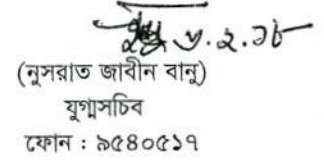 ৬.২.১৮
(নুসরাত জাবীন বানু)
যুগ্মসচিব
ফোন : ৯৫৪০৫১৭